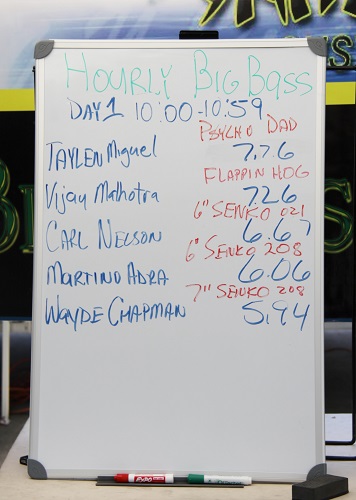 HOURLY BIG BASS
DAY 1 10:00-10:59
PSYCHO DAD
TAYLEN Miguel 7.76
FLAPPIN HOG
Vijay Malhotra 7.26
6" SENKO 021
CARL NELSON 6.67
6" SENKO 208
MARTINO ADRA 6.06
7" SENKO 208
WAYDE CHAPMAN 5.94
EXPO